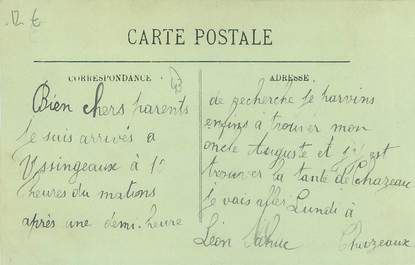 12 €
CARTE POSTALE
CORRESPONDANCE
Bien chers parents
je suis arrivés a
Yssingeaux à 10
heures du mations
après une demi-heure
ADRESSE
de recherche je parvins
enfins à trouver mon
oncle Auguste et j'y est
trouver la tante de Chazeaux
je vais aller Lundi à
Léon Chazeaux